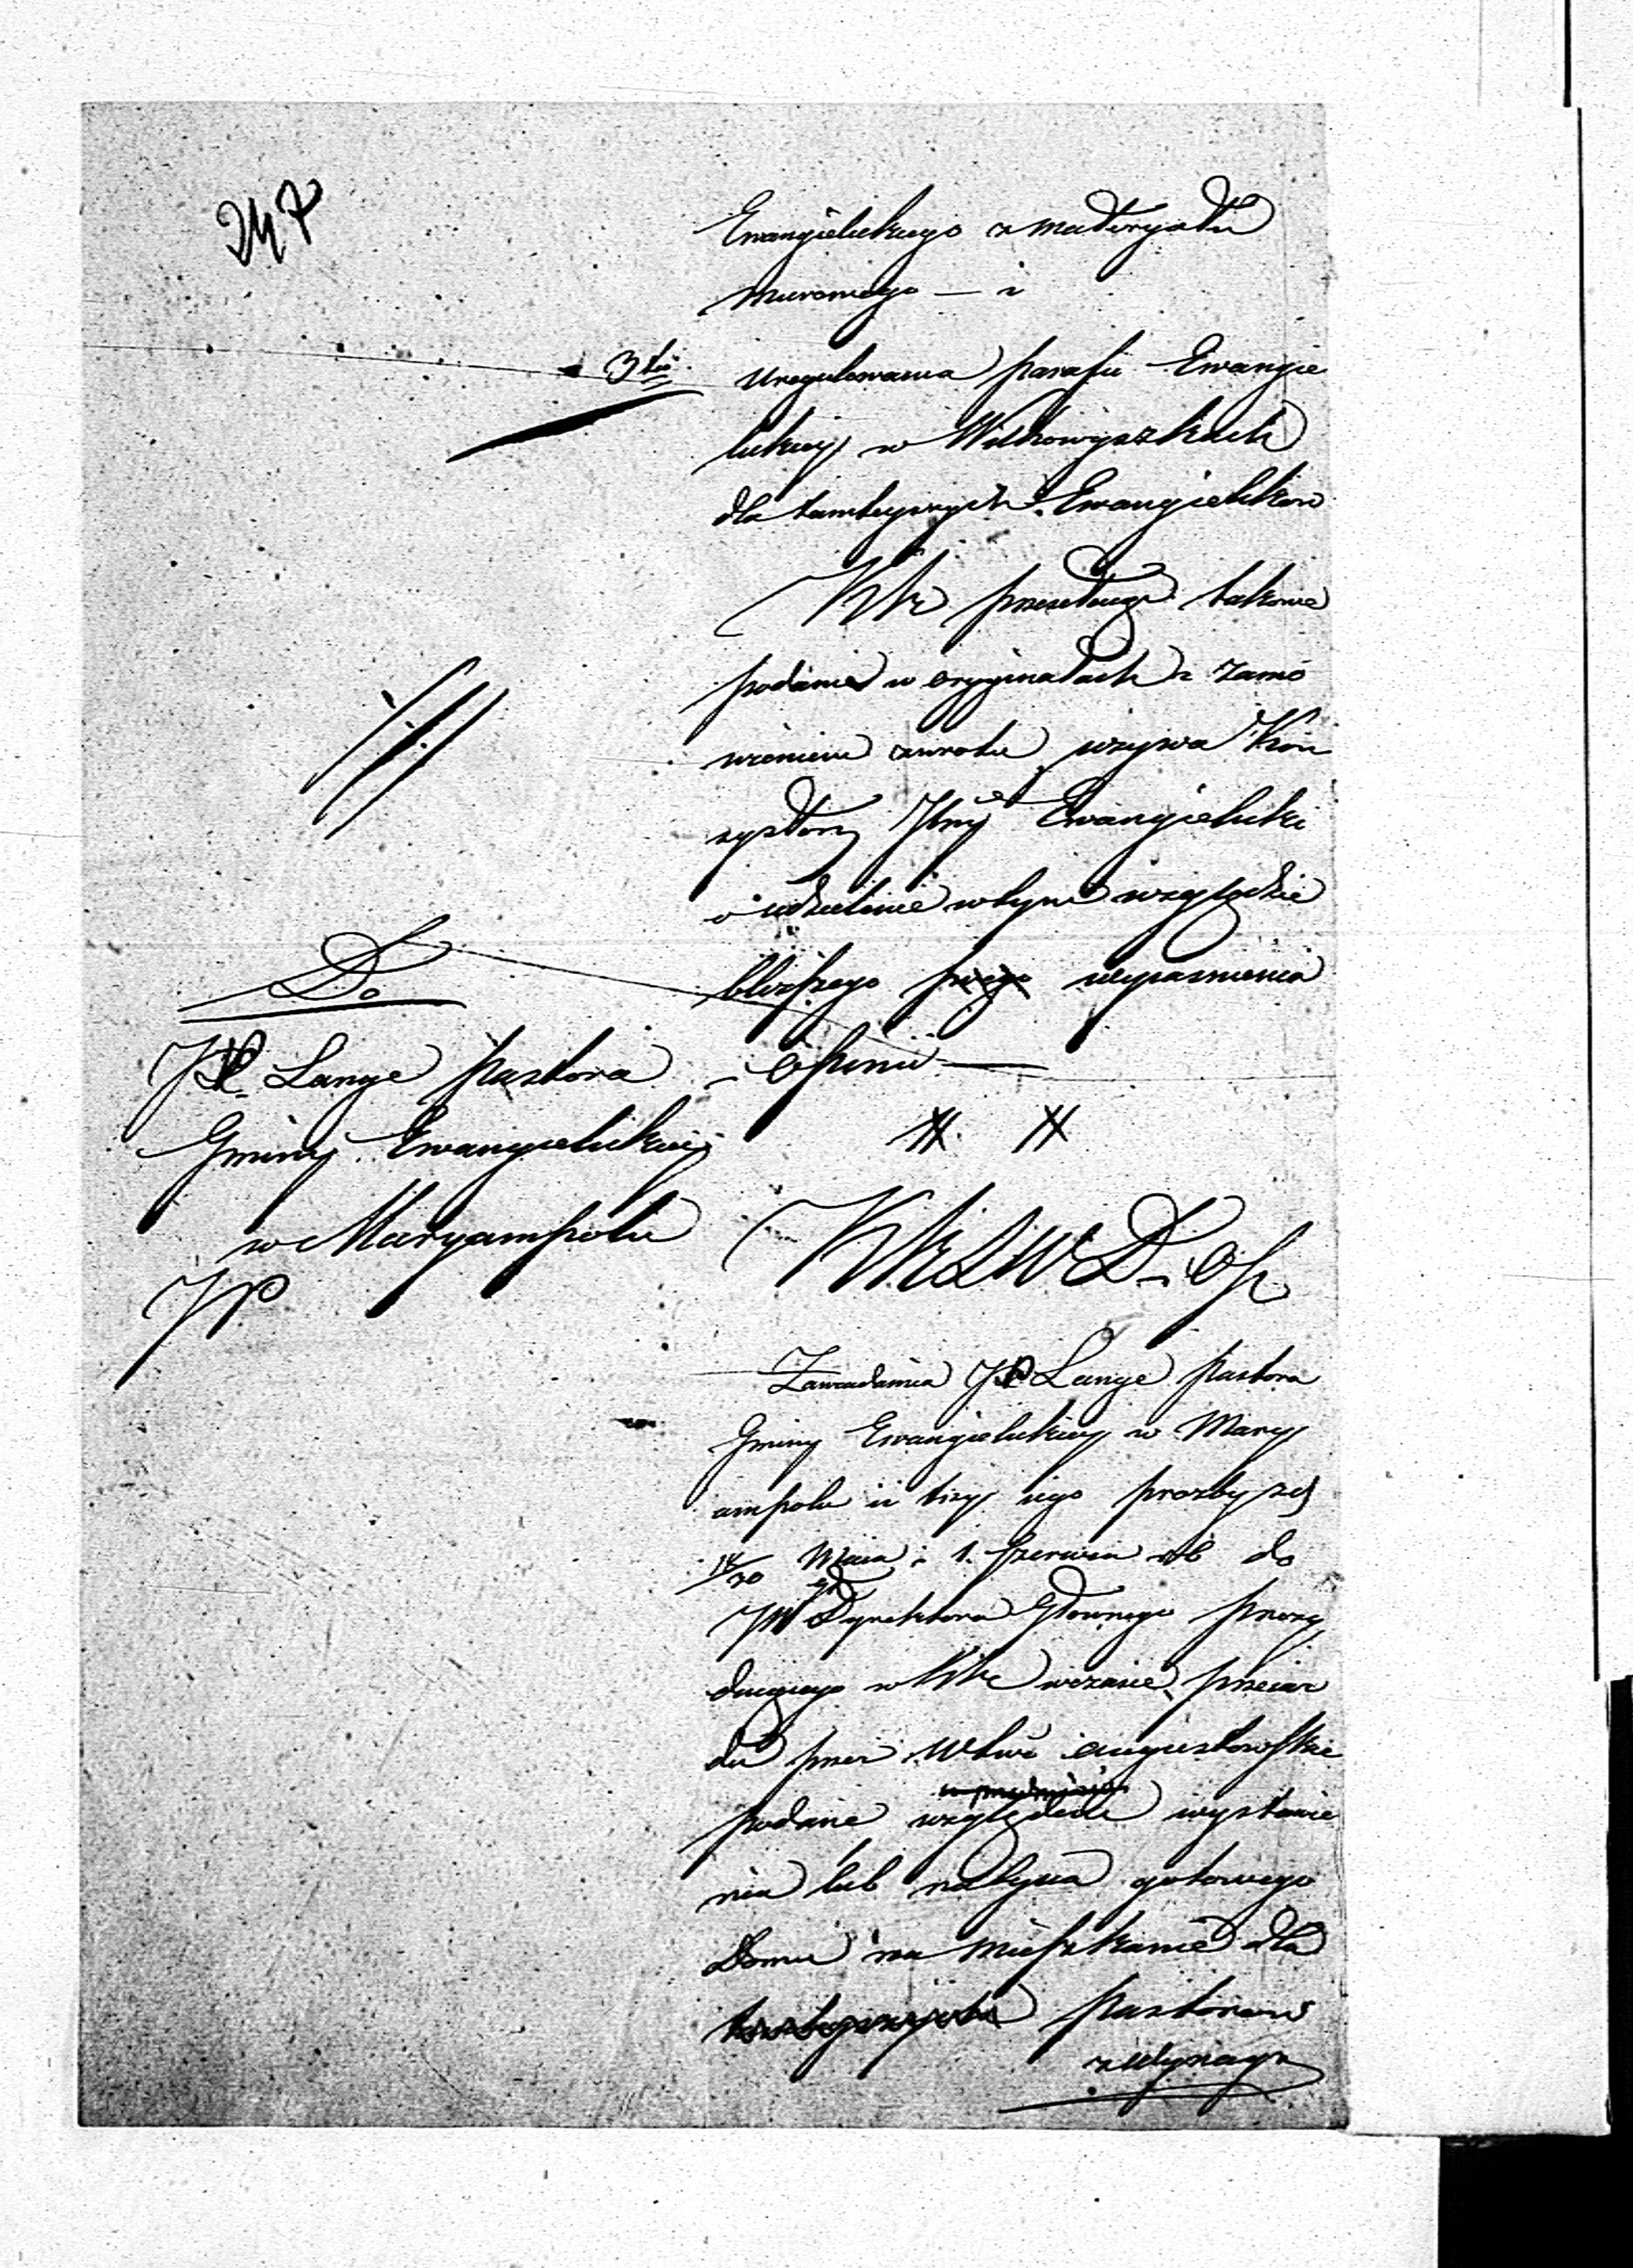 247
Ewangielickiego z materyału
murowanego — i
3tio
uregulowania parafii Ewangie
lickiey w Wiłkowyszkach
dla tamteyszych Ewangielików
KR przesełaiąc takowe
podania w oryginałach z zamó
wieniem zwrotu, wzywa Kon
systorz Jlny Ewangielicki
o udzielenie w tym względzie
bliższego wyjasnienia
i opinii —
Do
JP Lange Pastora
Gminy Ewangielickiey
w Maryampolu
JP
KRSWD i OP
Zawiadamia JP Lange Pastora
Gminy Ewangielickiey w Mary
ampolu iż trzy iego prozby z d
18/30 Maia i 1. Czerwca rb do
JW Dyrektora Głownego Prezy
duiącego w KR w czasie przeiaz
du przez Wtwo Augustowskie
podane względem wystawie
nia lub nabycia gotowego
Domu na mieszkanie dla
Pastorow